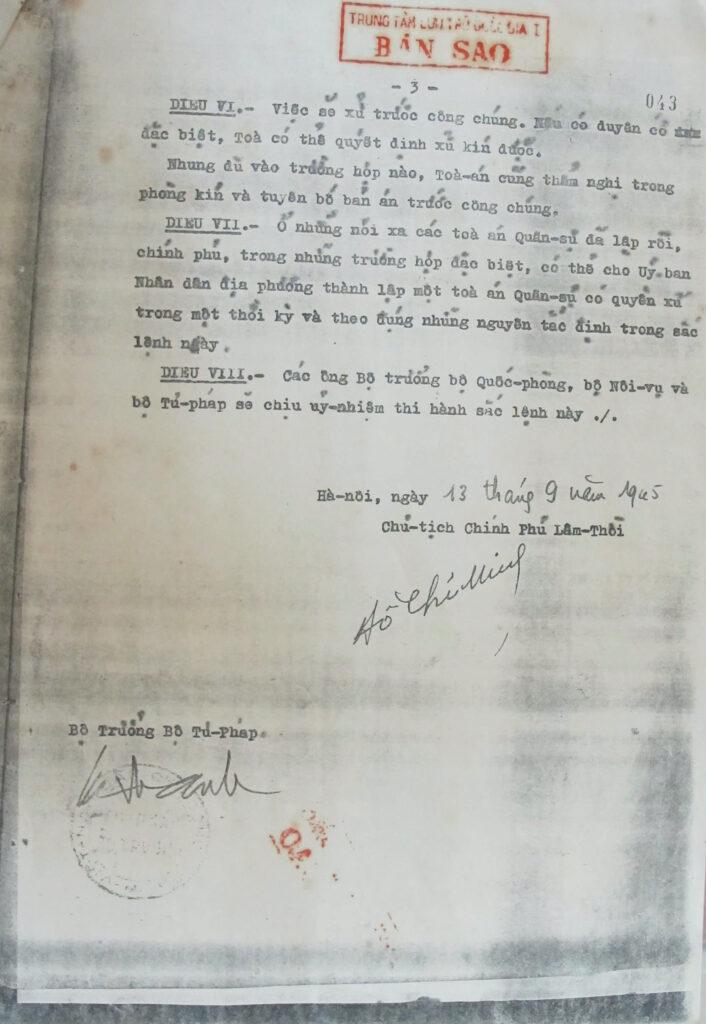 TRUNG TÂM LƯU TRỮ QUỐC GIA I
BẢN SAO
- 3 -
043
DIEU VI.- Việc sẽ xử trước công chúng. Nếu có duyên cớ
đặc biệt, Toà có thể quyết định xử kín được.
Nhưng dù vào trường hợp nào, Toà-án cũng thẩm nghị trong
phòng kín và tuyên bố bản án trước công chúng.
DIEU VII.- Ở những nơi xa các toà án Quân-sự đã lập rồi,
chính phủ, trong những trường hợp đặc biệt, có thể cho Uỷ ban
Nhân dân địa phương thành lập một toà án Quân-sự có quyền xử
trong một thời kỳ và theo đúng những nguyên tắc định trong sắc
lệnh ngày.
DIEU VIII.- Các ông Bộ trưởng bộ Quốc-phòng, bộ Nội-vụ và
bộ Tư-pháp sẽ chịu uỷ-nhiệm thi hành sắc lệnh này ./.
Hà-nội, ngày 13 tháng 9 năm 1945
Chủ-tịch Chính Phủ Lâm-Thời
Hồ Chí Minh
Bộ Trưởng Bộ Tư-Pháp